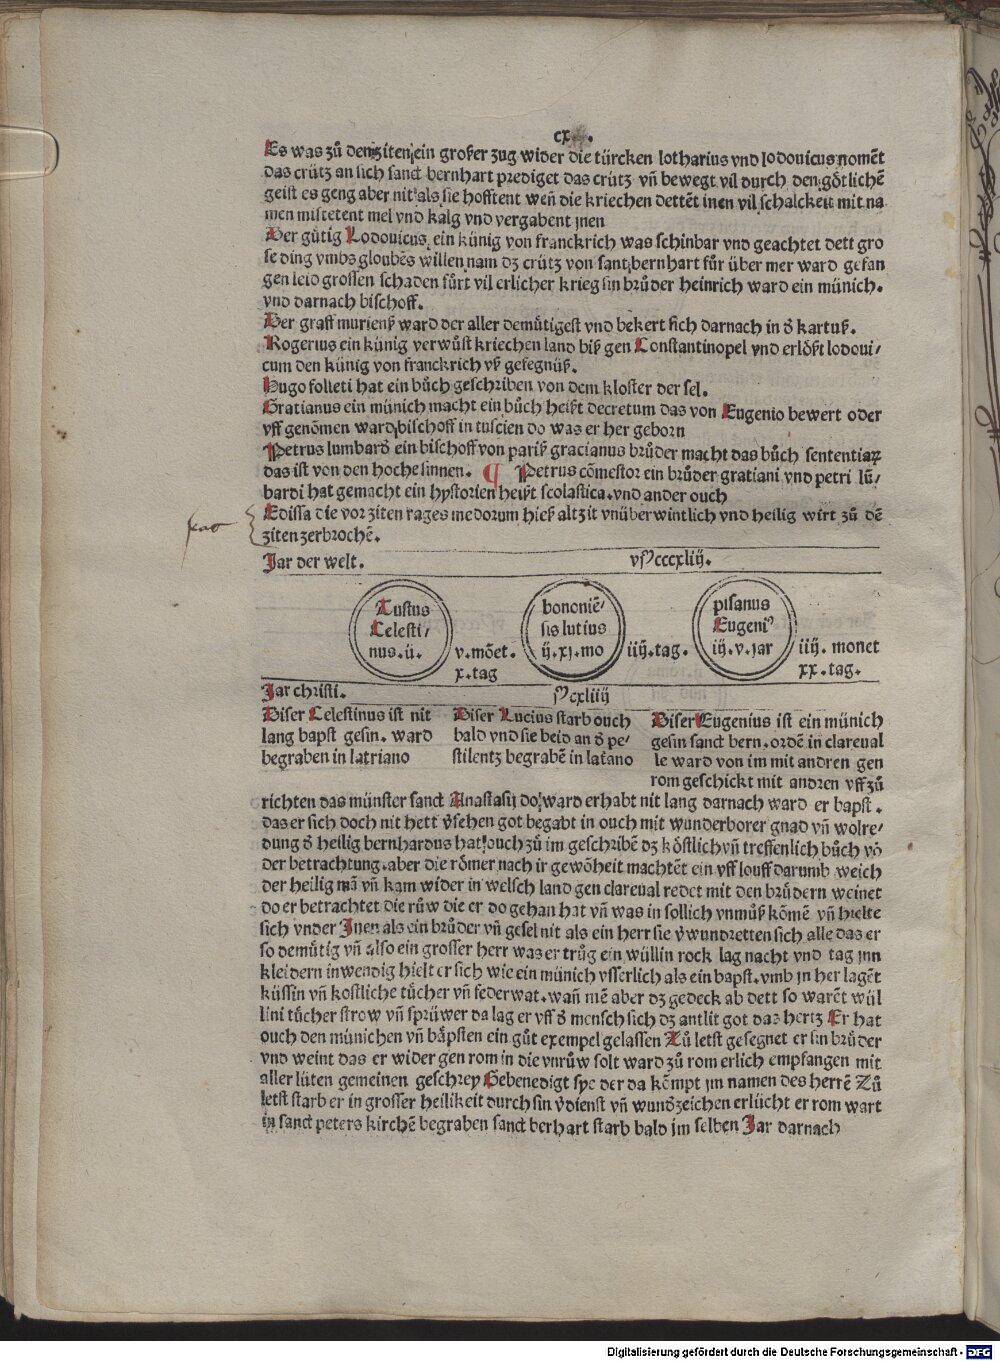 cx
Es was zů den ziten ein großer zug wider die türcken lotharius vnd lodouicus nomẽt
das crütz an sich sanct bernhart prediget das crütz vñ bewegt vil durch den götlichẽ
geist es geng aber nit als sie hofftent weñ die kriechen dettẽt inen vil schalckeit mit na
men mistetent mel vnd kalg vnd vergabent jnen
Der gůtig Lodouicus ein künig von franckrich was schinbar vnd geachtet dett gro
se ding vmbs gloubẽs willen nam dz crütz von sant bernhart fůr über mer ward gefan
gen leid grossen schaden fůrt vil erlicher krieg sin brůder heinrich ward ein münich.
vnd darnach bischoff.
Der graff murienß ward der aller demůtigest vnd bekert sich darnach in d̕ kartuß.
Rogerius ein künig verwůst kriechen land biß gen Constantinopel vnd erlößt lodoui/
cum den künig von franckrich vß gefegnüß.
Hugo folleti hat ein bůch geschriben von dem kloster der sel.
Gratianus ein münich macht ein bůch heißt decretum das von Eugenio bewert oder
vff genõmen ward bischoff in tuscien do was er her geborn
Petrus lumbard̕ ein bischoff von pariß gracianus brůder macht das bůch sententiaꝝ
das ist von den hoche sinnen. ¶ Petrus cõmestor ein brůder gratiani vnd petri lũ/
bardi hat gemacht ein hystorien heißt scolastica. vnd ander ouch
Edissa die vor ziten rages medorum hieß altzit vnüberwintlich vnd heilig wirt zů dẽ
ziten zerbrochẽ.
Jar der welt. vjꝰcccxliij.
Tuscus
Celesti/
nus. ij. v. mõet.
x. tag
bononiẽ/
sis lutius
ij. xj. mo iiij. tag.
pisanus
Eugeniꝰ
iij. v. jar iiij. monet
xx. tag.
Jar christi. jꝰcxliiij
Diser Celestinus ist nit
lang bapst gesin. ward
begraben in latriano
Diser Lucius starb ouch
bald vnd sie beid an d̕ pe/
stilentz begrabẽ in latano
Diser Eugenius ist ein münich
gesin sanct bern. ordẽ in clareual
le ward von im mit andren gen
rom geschickt mit andren vff zů
richten das münster sanct Anastasij do ward erhabt nit lang darnach ward er bapst.
das er sich doch nit hett v̕sehen got begabt in ouch mit wunderborer gnad vñ wolre/
dung d̕ heilig bernhardus hat ouch zů im geschribẽ dz köstlich vñ treffenlich bůch võ
der betrachtung. aber die römer nach ir gewõheit machtẽt ein vff louff darumb weich
der heilig mã vñ kam wider in welsch land gen clareual redet mit den brůdern weinet
do er betrachtet die růw die er do gehan hat vñ was in sollich vnmůß kõmẽ vñ hielte
sich vnder Jnen als ein brůder vñ gesel nit als ein herr sie v̕wundretten sich alle das er
so demůtig vñ also ein grosser herr was er trůg ein wüllin rock lag nacht vnd tag jnn
kleidern inwendig hielt er sich wie ein münich vsserlich als ein bapst. vmb jn her lagẽt
küssin vñ kostliche tůcher vñ federwat. wañ mẽ aber dz gedeck ab dett so warẽt wül
lini tůcher strow vñ sprüwer da lag er vff d̕ mensch sich dz antlit got das hertz Er hat
ouch den münichen vñ båpsten ein gůt exempel gelassen Zů letst gesegnet er sin brůder
vnd weint das er wider gen rom in die vnrůw solt ward zů rom erlich empfangen mit
aller lüten gemeinen geschrey Gebenedigt sye der da kõmpt jm namen des herrẽ Zů
letst starb er in grosser heilikeit durch sin v̕dienst vñ wundzeichen erlücht er rom wart
in sanct peters kirchẽ begraben sanct berhart starb bald jm selben Jar darnach
Digitalisierung gefördert durch die Deutsche Forschungsgemeinschaft - DFG